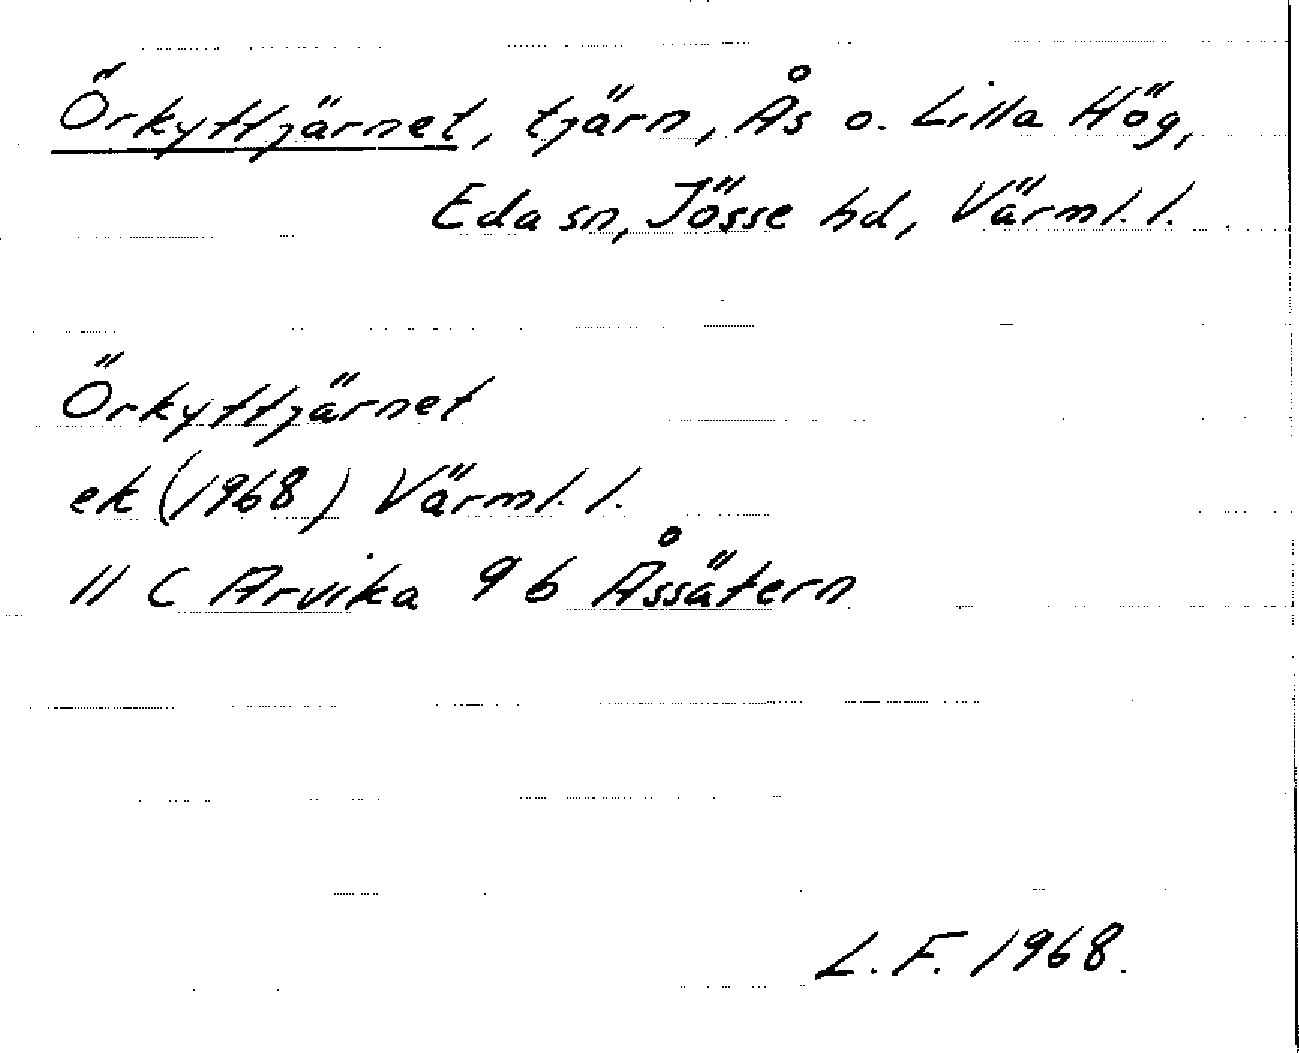 Örkyttjärnet, tjärn, Ås o. Lilla Hög,
Eda sn, Jösse hd, Värml. l.
Örkyttjärnet
ek (1968) Värml. l.
11 C Arvika 9 b Åssätern
L. F. 1968.